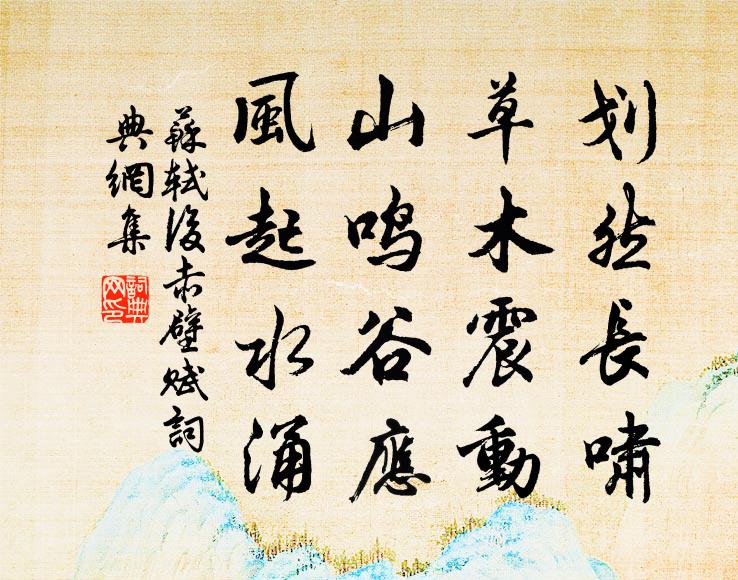 划然長啸
草木震動
山鸣谷應
風起水涌
蘇轼後赤壁赋詞
典網集
詞典
网印